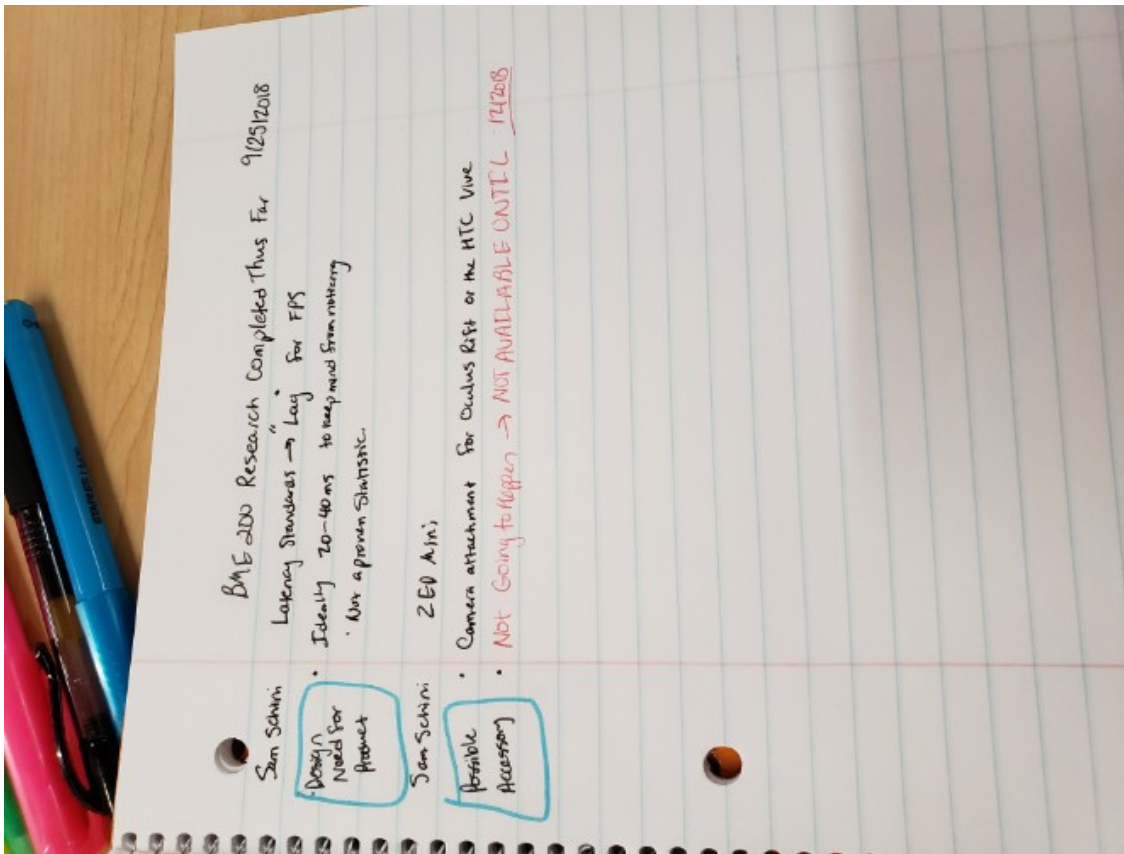 BME 200 Research Completed Thus Far 9/25/2018
Sam Schini
Latency Standards → "Lag" for FPS
Design
Need for
Product
• Ideally 20-40ms to keep mind from noticing
• Not a proven statistic.
Sam Schini
ZED Mini
Possible
Accessory
• Camera attachment for Oculus Rift or the HTC Vive
• Not Going to Happen → NOT AVAILABLE UNTIL : 12/2018